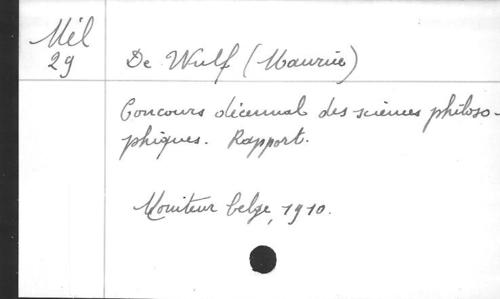 Mél
29
De Wulf (Maurice)
Concours décennal des sciences philoso-
phiques. Rapport.
Moniteur belge, 1910.